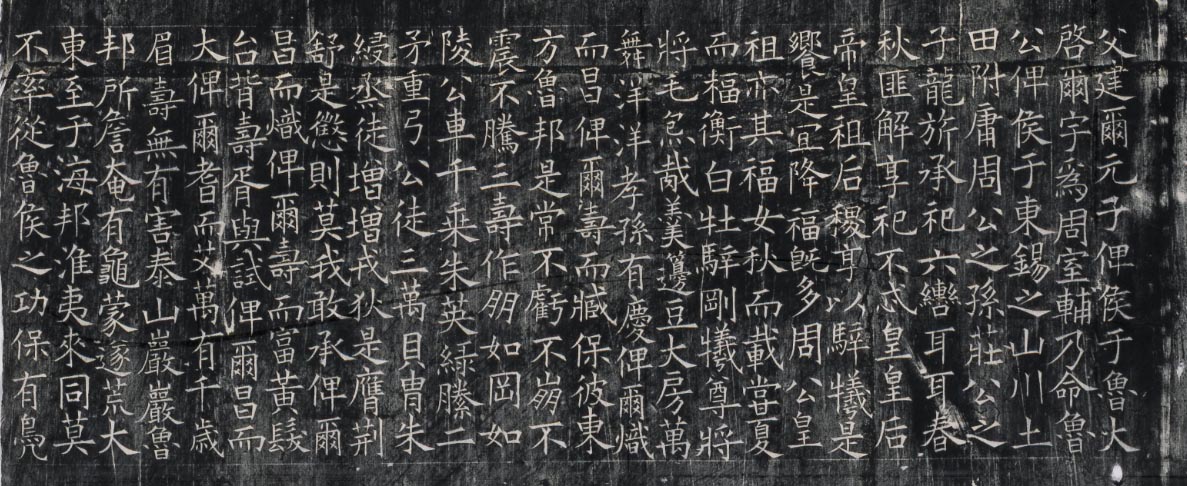 父建爾元子俾侯于魯大
啓爾宇爲周室輔乃命魯
公俾侯于東錫之山川土
田附庸周公之孫莊公之
子龍旂承祀六轡耳耳春
秋匪解享祀不忒皇皇后
帝皇祖后稷享以騂犧是
饗是宜降福既多周公皇
祖亦其福女秋而載甞夏
而楅衡白牡騂剛犧尊將
將毛炰胾羹籩豆大房萬
舞洋洋孝孫有慶俾爾熾
而昌俾爾壽而臧保彼東
方魯邦是常不虧不崩不
震不騰三壽作朋如岡如
陵公車千乘朱英綠縢二
矛重弓公徒三萬貝胄朱
綅烝徒增增戎狄是膺荆
舒是懲則莫我敢承俾爾
昌而熾俾爾壽而富黃髮
台背壽胥與試俾爾昌而
大俾爾耆而艾萬有千歲
眉壽無有害泰山巖巖魯
邦所詹奄有龜蒙遂荒大
東至于海邦淮夷來同莫
不率從魯侯之功保有鳧